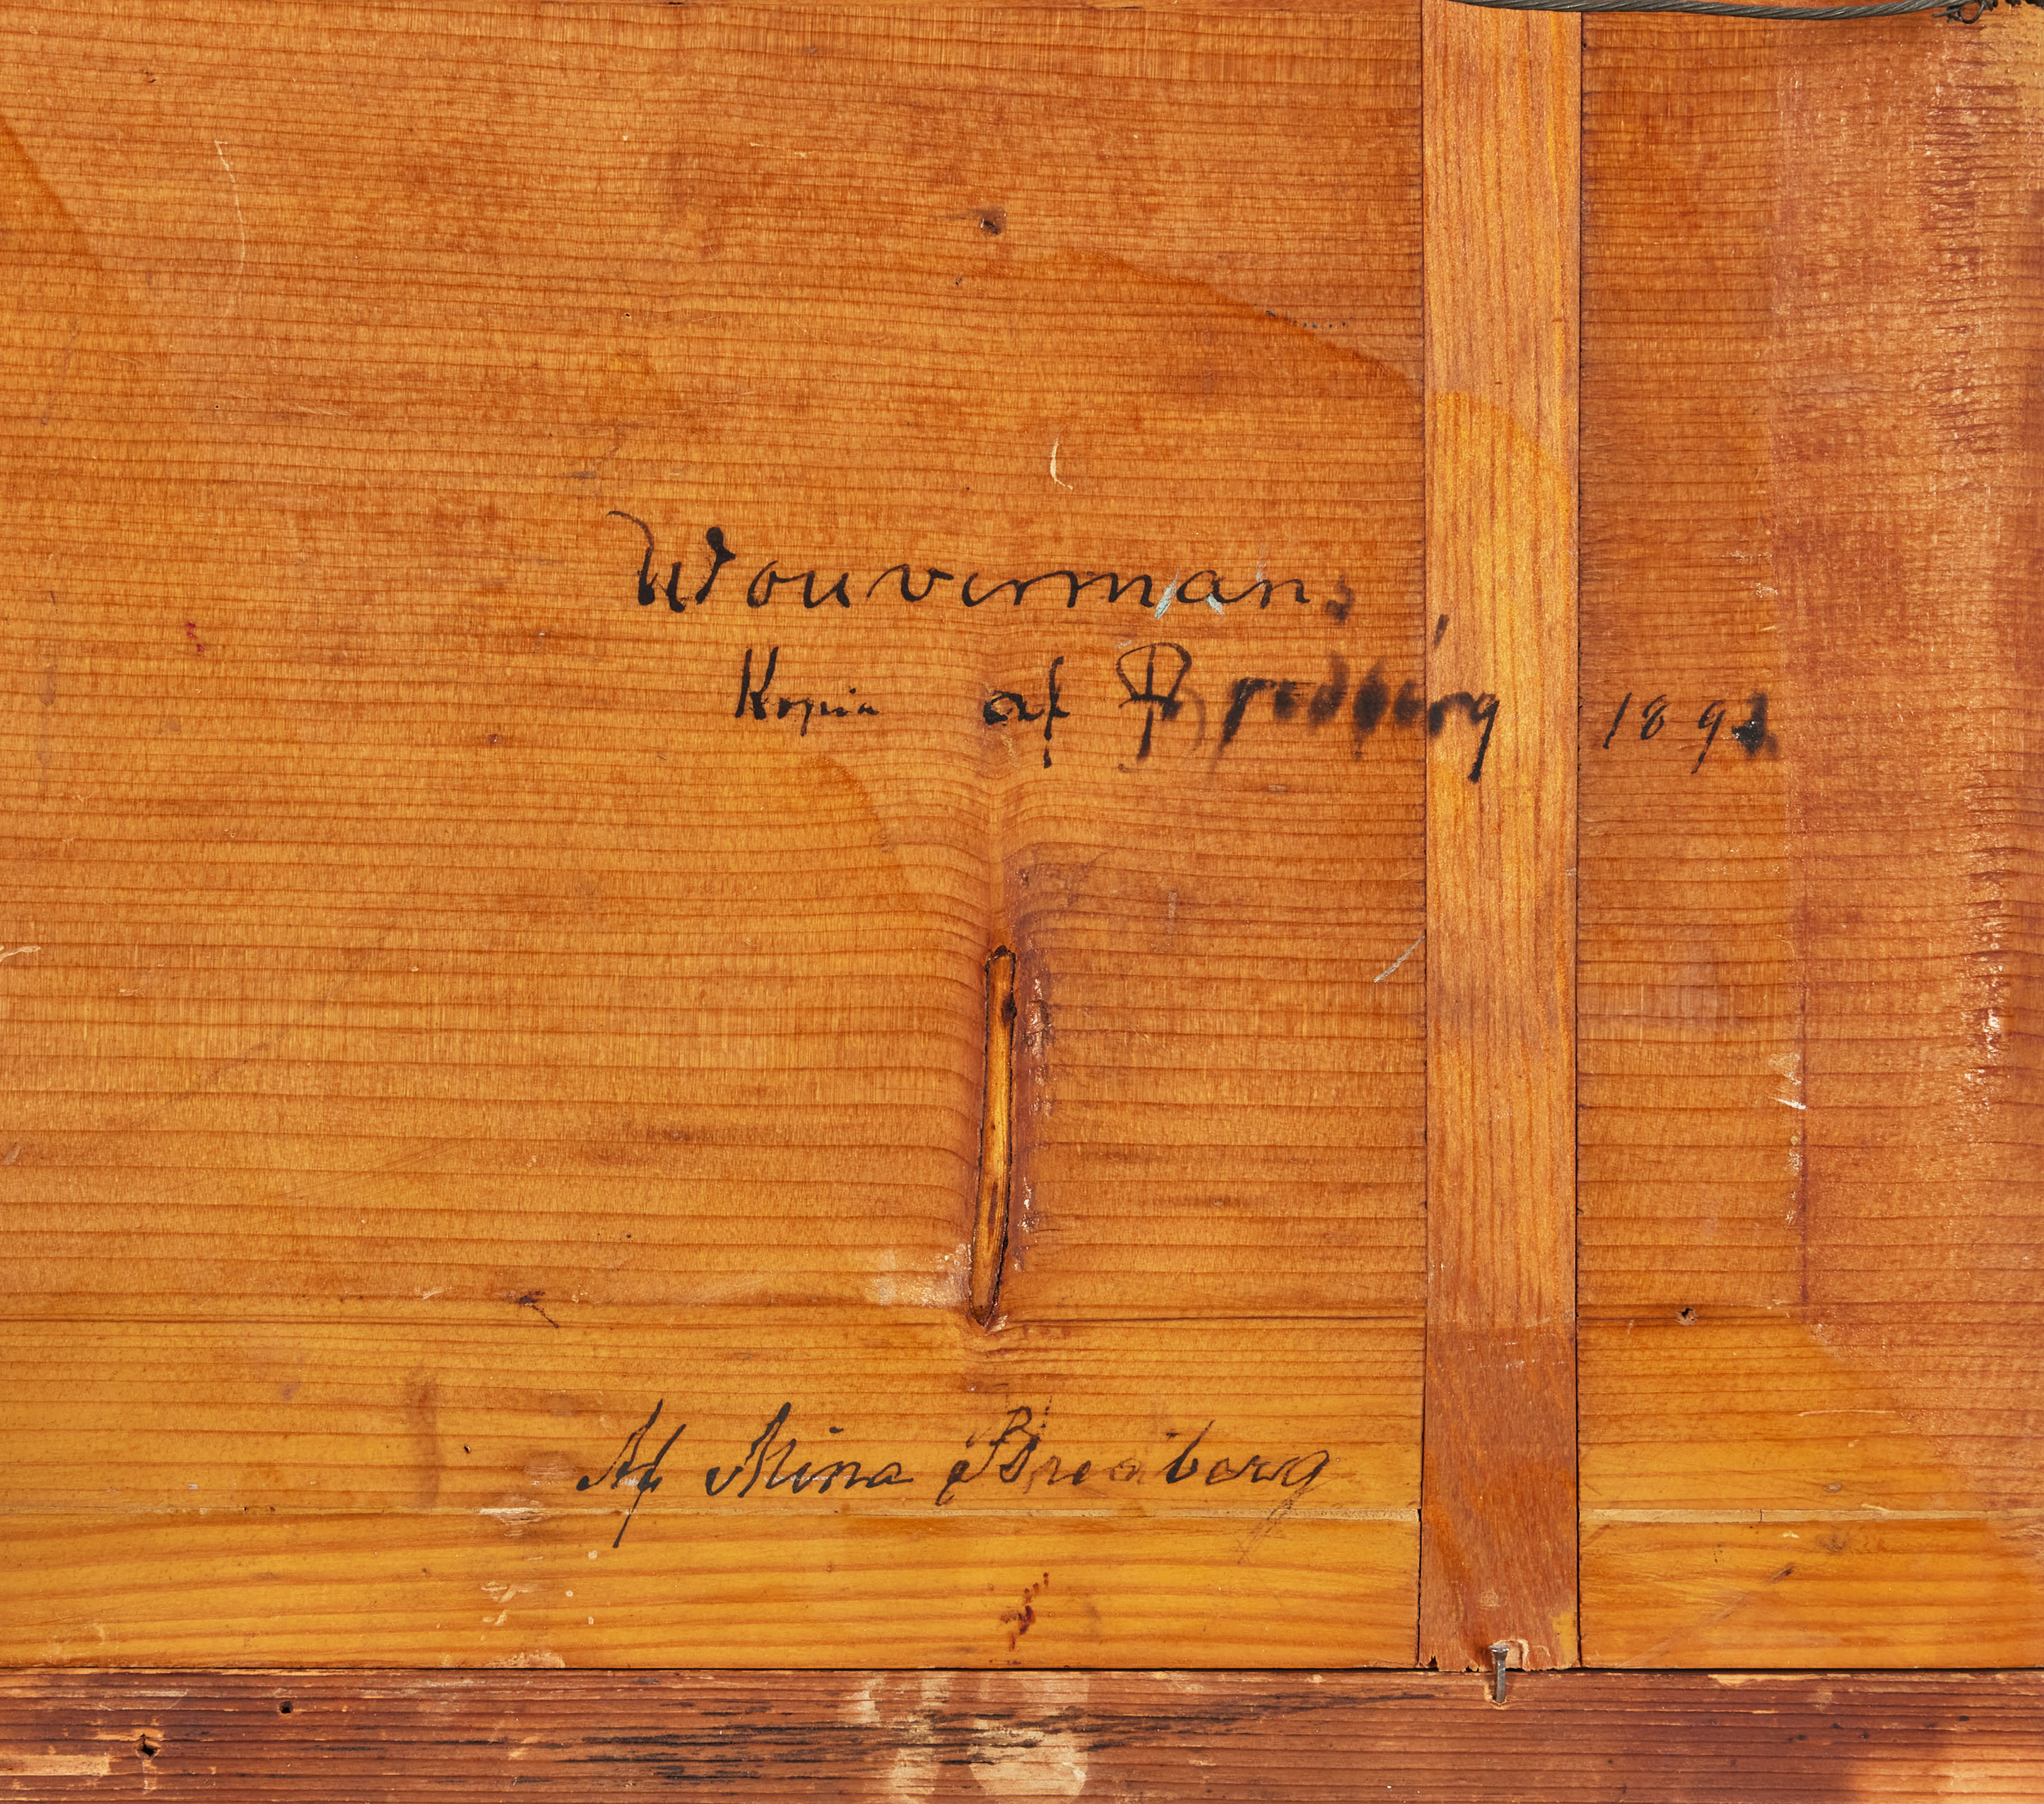 Wouvermans
Kopia af Bredberg 189
Af Mina Bredberg